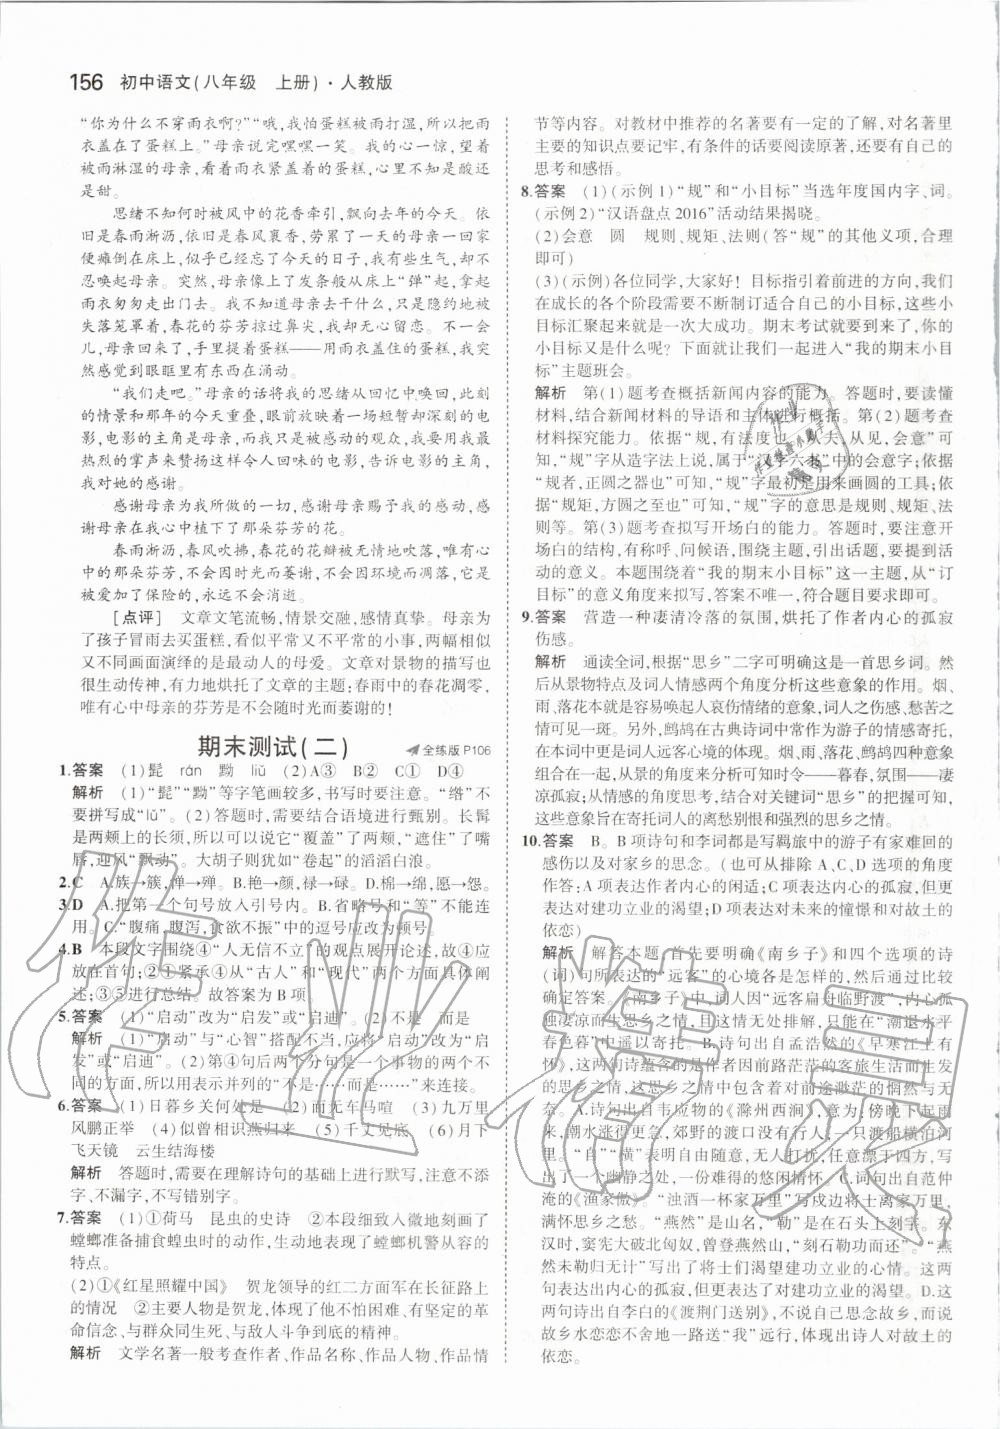 156 初中语文(八年级 上册)·人教版
“你为什么不穿雨衣啊?”“哦,我怕蛋糕被雨打湿,所以把雨
衣盖在了蛋糕上。”母亲说完嘿嘿一笑。我的心一惊,望着
被雨淋湿的母亲,看着雨衣紧盖着的蛋糕,心里不知是苦还
是甜。
思绪不知何时被风中的花香牵引,飘向去年的今天。依
旧是春雨淅沥,依旧是春风裹香,劳累了一天的母亲一回家
便瘫倒在床上,似乎已经忘了今天的日子,我有些生气,却也
不忍唤起母亲。突然,母亲像上了发条般从床上“弹”起,拿起
雨衣匆匆走出门去。我不知道母亲去干什么,只是隐约地被
失落笼罩着,春花的芬芳掠过鼻尖,我却无心留恋。不一会
儿,母亲回来了,手里提着蛋糕——用雨衣盖住的蛋糕,我突
然感觉到眼眶里有东西在涌动。
“我们走吧。”母亲的话将我的思绪从回忆中唤回,此刻
的情景和那年的今天重叠,眼前放映着一场短暂却深刻的电
影,电影的主角是母亲,而我就是被感动的观众,我要用最
热烈的掌声来赞扬这样令人回味的电影,告诉电影的主角,
我对她的感谢。
感谢母亲为我所做的一切,感谢母亲赐予我的感动,感
谢母亲在我心中植下了那朵芬芳的花。
春雨淅沥,春风吹拂,春花的花瓣被无情地吹落,唯有心
中的那朵芬芳,不会因时光而萎谢,不会因环境而凋落,它已
被爱加了保险的,永远不会消逝。
[点评] 文章文笔流畅,情景交融,感情真挚。母亲为
了孩子冒雨去买蛋糕,看似平常又不平常的小事,两幅相似
又不同画面演绎的是最动人的母爱。文章对景物的描写也
很生动传神,有力地烘托了文章的主题;春雨中的春花凋零,
唯有心中母亲的芬芳是不会随时光而萎谢的!
期末测试(二) 全练版 P106
1.答案 (1)髭 rán 黝 liǔ (2)A③ B② C① D④
解析 (1)“髭”“黝”等字笔画较多,书写时要注意。“绺”不
要拼写成“lǔ”。(2)答题时,需要结合语境进行甄别。长髯
是两颊上的长须,所以可以说它“覆盖”了两颊,“遮住”了嘴
唇,迎风“飘动”。大胡子则犹如“卷起”的滔滔白浪。
2.C A.族→簇,惮→殚。B.艳→颜,禄→碌。D.棉→绵。
3.D A.把第一个句号放入引号内。B.省略号和“等”不能连
用。C.“腹痛,腹泻,食欲不振”中的逗号应改为顿号。
4.B 本段文字围绕④“人无信不立”的观点展开论述,故④应
放在首句;②①紧承④从“古人”和“现代”两个方面具体阐
述;③⑤进行总结。故答案为B项。
5.答案 (1)“启动”改为“启发”或“启迪”。(2)不是 而是
解析 (1)“启动”与“心智”搭配不当,应将“启动”改为“启
发”或“启迪”。(2)第④句后两个分句是一个事物的两个不
同的方面,所以用表示并列的“不是……而是……”来连接。
6.答案 (1)日暮乡关何处是 (2)而无车马喧 (3)九万里
风鹏正举 (4)似曾相识燕归来 (5)千丈见底 (6)月下
飞天镜 云生结海楼
解析 答题时,需要在理解诗句的基础上进行默写,注意不添
字、不漏字,不写错别字。
7.答案 (1)①荷马 昆虫的史诗 ②本段细致入微地刻画了
螳螂准备捕食蝗虫时的动作,生动地表现了螳螂机警从容的
特点。
(2)①《红星照耀中国》 贺龙领导的红二方面军在长征路上
的情况 ②主要人物是贺龙,体现了他不怕困难、有坚定的革
命信念、与群众同生死、与敌人斗争到底的精神。
解析 文学名著一般考查作者、作品名称、作品人物、作品情
节等内容。对教材中推荐的名著要有一定的了解,对名著里
主要的知识点要记牢,有条件的话要阅读原著,还要有自己的
思考和感悟。
8.答案 (1)(示例1)“规”和“小目标”当选年度国内字、词。
(示例2)“汉语盘点2016”活动结果揭晓。
(2)会意 圆 规则、规矩、法则(答“规”的其他义项,合理
即可)
(3)(示例)各位同学,大家好!目标指引着前进的方向,我们
在成长的各个阶段需要不断制订适合自己的小目标,这些小
目标汇聚起来就是一次大成功。期末考试就要到来了,你的
小目标又是什么呢?下面就让我们一起进入“我的期末小目
标”主题班会。
解析 第(1)题考查概括新闻内容的能力。答题时,要读懂
材料,结合新闻材料的导语和主体进行概括。第(2)题考查
材料探究能力。依据“规,有法度也。从夫,从见,会意”可
知,“规”字从造字法上说,属于“汉字六书”中的会意字;依据
“规者,正圆之器也”可知,“规”字最初是用来画圆的工具;依
据“规矩,方圆之至也”可知,“规”字的意思是规则、规矩、法
则等。第(3)题考查拟写开场白的能力。答题时,要注意开
场白的结构,有称呼、问候语,围绕主题,引出话题,尽量要生
动活泼。本题围绕着“我的期末小目标”这一主题,从“订
目标”的意义角度来拟写,答案不唯一,符合题目要求即可。
9.答案 营造一种凄清冷落的氛围,烘托了作者内心的孤寂
伤感。
解析 通读全词,根据“思乡”二字可明确这是一首思乡词。然
后从景物特点及词人情感两个角度分析这些意象的作用。烟、
雨、落花本就是容易唤起人哀伤情绪的意象,词人之伤感、愁苦之
情可见一斑。另外,鹧鸪在古典诗词中常作为游子的情感寄托,
在词中表现词人远客心境的体现。烟、雨、落花、鹧鸪四种意象
组合在一起,从景的角度来分析可知时令——暮春,氛围——凄
凉孤寂;从情的角度来分析,结合对关键词“思乡”的把握可知,
这些意象旨在寄托词人的离愁别恨和强烈的思乡之情。
10.答案 B。B项诗句和李词都是写羁旅中的游子有家难回的
感伤以及对家乡的思念。(也可从排除A、C、D选项的角度
作答:A项表达作者内心的闲适;C项表达内心的孤寂,但更
多表达对建功立业的渴望;D项表达对未来的憧憬和对故土的
依恋)
解析 解答本题,首先要明确《南乡子》和四个选项的诗
(词)句所表达的“远客”的心境各是怎样的,然后通过比较
确定答案。《南乡子》中,词人因“远客扁舟临野渡”,内心孤
独凄凉而生思乡之情,但这一情意无处排解,只能在“潮退水平
春色暮”中遥以寄托。B.诗句出自孟浩然的《早寒江上有
怀》,这两句诗蕴含着作者因前路茫茫而客旅生活油然而生
的思乡之情,这思乡之情中间接流露出前途渺茫的惆怅与无
奈。A.诗句出自韦应物的《滁州西涧》,意为:傍晚下雨潮水
涨得更急,郊野的渡口没有行人,只有渡船横泊河里。
诗中“自”“横”表明无人打扰,任意漂于四野,而看到这番景象
的诗人,流露出一种恬淡的悠闲情怀。C.词句出自范仲
淹的《渔家傲》。“浊酒一杯家万里”写戍边将士离家万里,
满怀思乡之愁。“燕然”是山名,“勒”是在石头上刻字。东
汉时,窦宪北破匈奴,曾登燕然山,“刻石勒功而还”。“燕然
未勒归无计”写出了将士们渴望建功立业的心情。这两句
诗写出作者内心的孤寂,但更多表达对建功立业的渴望。D.这
两句诗出自李白的《渡荆门送别》,不说自己思念故乡,而说
故乡水恋恋不舍地一路送“我”远行,体现出诗人对故土的
依恋。